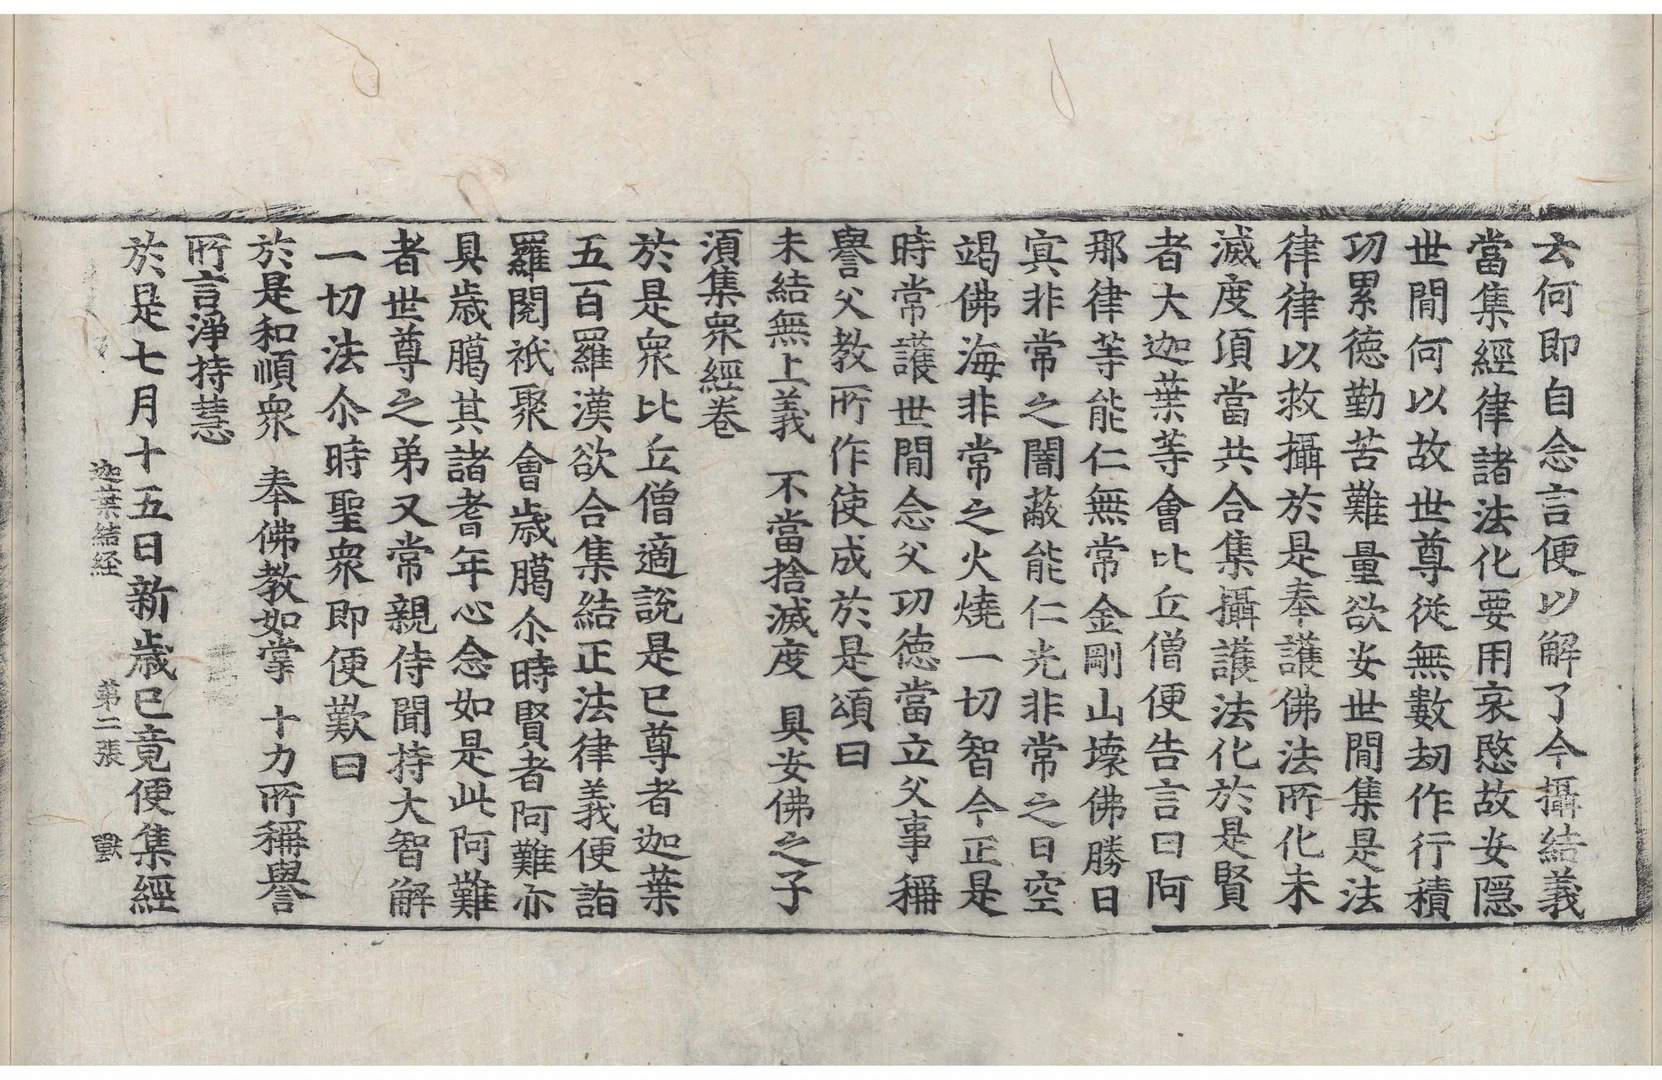 云何即自念言便以解了今攝結義
當集經律諸法化要用哀愍故安隱
世閒何以故世尊従無數劫作行積
功累德勤苦難量欲安世閒集是法
律律以救攝於是奉護佛法所化未
滅度湏當共合集攝護法化於是賢
者大迦葉等會比丘僧便告言曰阿
那律等能仁無常金剛山壞佛勝日
㝠非常之闇蔽能仁光非常之日空
竭佛海非常之火燒一切智今正是
時常護世閒念父功德當立父事稱
譽父教所作使成於是頌曰
未結無上義　不當捨滅度　具安佛之子
湏集衆經卷
於是衆比丘僧適說是已尊者迦葉
五百羅漢欲合集結正法律義便詣
羅閱祇聚會歲臈尒時賢者阿難亦
具歲臈其諸耆年心念如是此阿難
者世尊之弟又常親侍聞持大智解
一切法尒時聖衆即便歎曰
於是和順衆　奉佛教如掌　十力所稱譽
所言淨持慧
於是七月十五日新歲已竟便集經
迦葉結経　第二張　獸